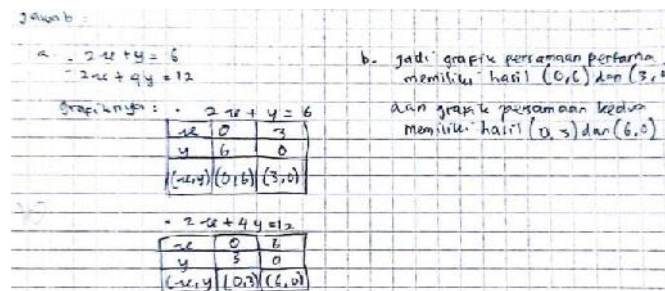 Jawab :
a. - 2x + y = 6
- 2x + 4y = 12
Grafiknya : - 2x + y = 6
x 0 3
y 6 0
(x,y) (0,6) (3,0)
- 2x + 4y = 12
x 0 6
y 3 0
(x,y (0,3) (6,0)
b. Jadi grafik persamaan pertama
memiliki hasil (0,6) dan (3,
dan grafik persamaan kedua
memiliki hasil (0,3) dan (6,0)